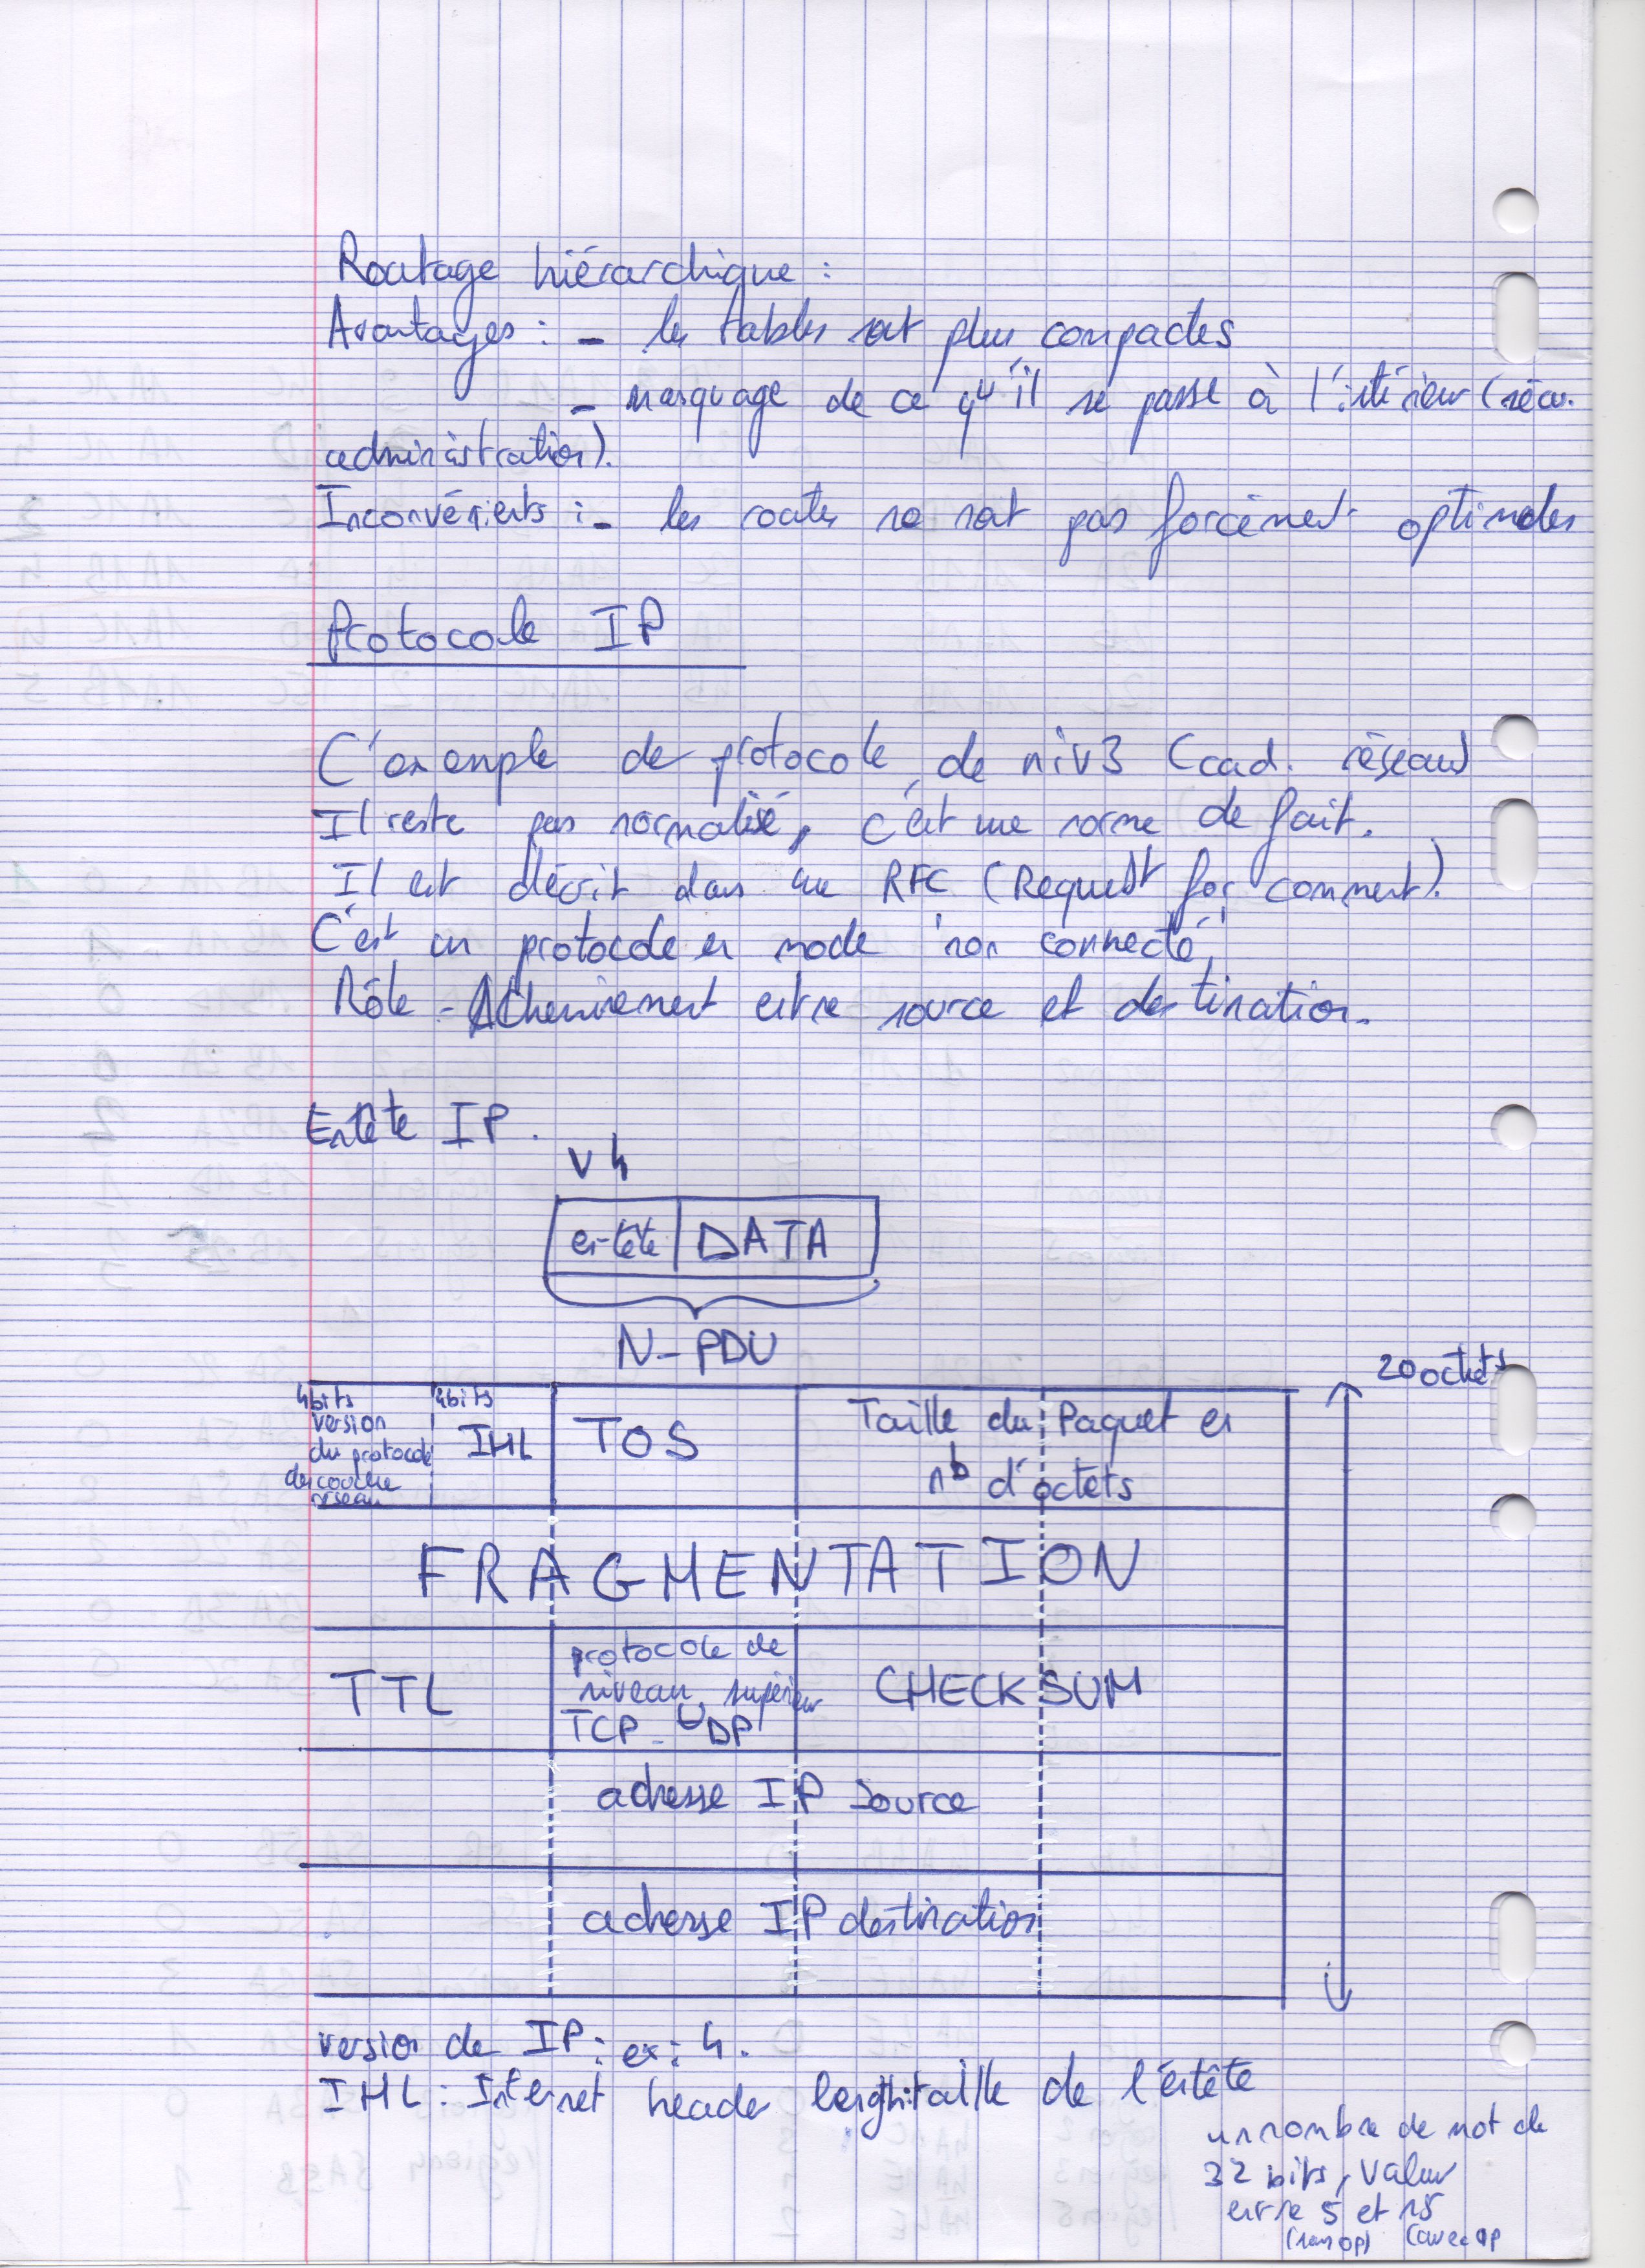 Routage hiérarchique :
Avantages : - les tables sont plus compactes
- masquage de ce qu'il se passe à l'intérieur (sécu.
administration).
Inconvénients : - les routes ne sont pas forcément optimales
Protocole IP
C'exemple de protocole de niv3 (cad. réseau)
Il reste pas normalisé, c'est une norme de fait.
Il est décrit dans une RFC (Request for comment).
C'est un protocole en mode "non connecté"
Rôle - Acheminement entre source et destination.
Entête IP.
v4
en-tête DATA
N-PDU
20 octets
4bits version du protocole de couche réseau
4bits IHL
TOS
Taille du Paquet en
nb d'octets
FRAGMENTATION
TTL
protocole de
niveau supérieur
TCP - UDP
CHECKSUM
adresse IP source
adresse IP destination
version de IP : ex : 4.
IHL : Internet header length taille de l'entête
un nombre de mot de
32 bits, valeur
entre 5 et 15
(sans op) (avec op